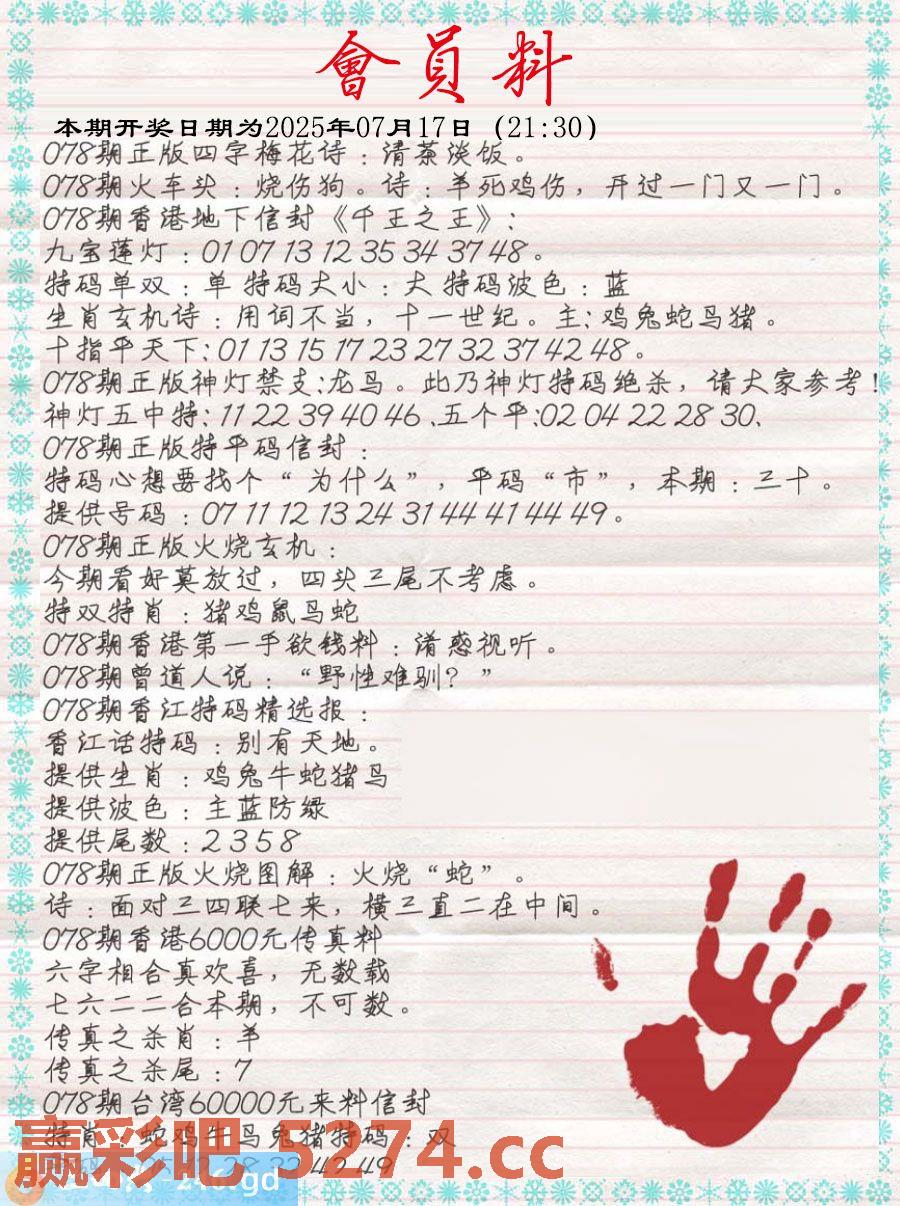 會員料
本期开奖日期为2025年07月17日 (21:30)
078期正版四字梅花诗：清茶淡饭。
078期火车头：烧伤狗。诗：羊死鸡伤，开过一门又一门。
078期香港地下信封《千王之王》：
九宝莲灯：01 07 13 12 35 34 37 48。
特码单双：单 特码大小：大 特码波色：蓝
生肖玄机诗：用词不当，十一世纪。主：鸡兔蛇马猪。
十指平天下：01 13 15 17 23 27 32 37 42 48。
078期正版神灯禁支：龙马。此乃神灯特码绝杀，请大家参考！
神灯五中特：11 22 39 40 46、五个平：02 04 22 28 30、
078期正版特平码信封：
特码心想要找个“为什么”，平码“市”，本期：三十。
提供号码：07 11 12 13 24 31 44 41 44 49。
078期正版火烧玄机：
今期看好莫放过，四头三尾不考虑。
特双特肖：猪鸡鼠马蛇
078期香港第一手欲钱料：淆惑视听。
078期曾道人说：“野性难驯？”
078期香江特码精选报：
香江话特码：别有天地。
提供生肖：鸡兔牛蛇猪马
提供波色：主蓝防绿
提供尾数：2 3 5 8
078期正版火烧图解：火烧“蛇”。
诗：面对三四联七来，横三直二在中间。
078期香港6000元传真料
六字相合真欢喜，无数载
七六二二合本期，不可数。
传真之杀肖：羊
传真之杀尾：7
078期台湾60000元来料信封
特肖：蛇鸡牛马兔猪特码：双
赢彩吧-5274.cc
28 32 42 49